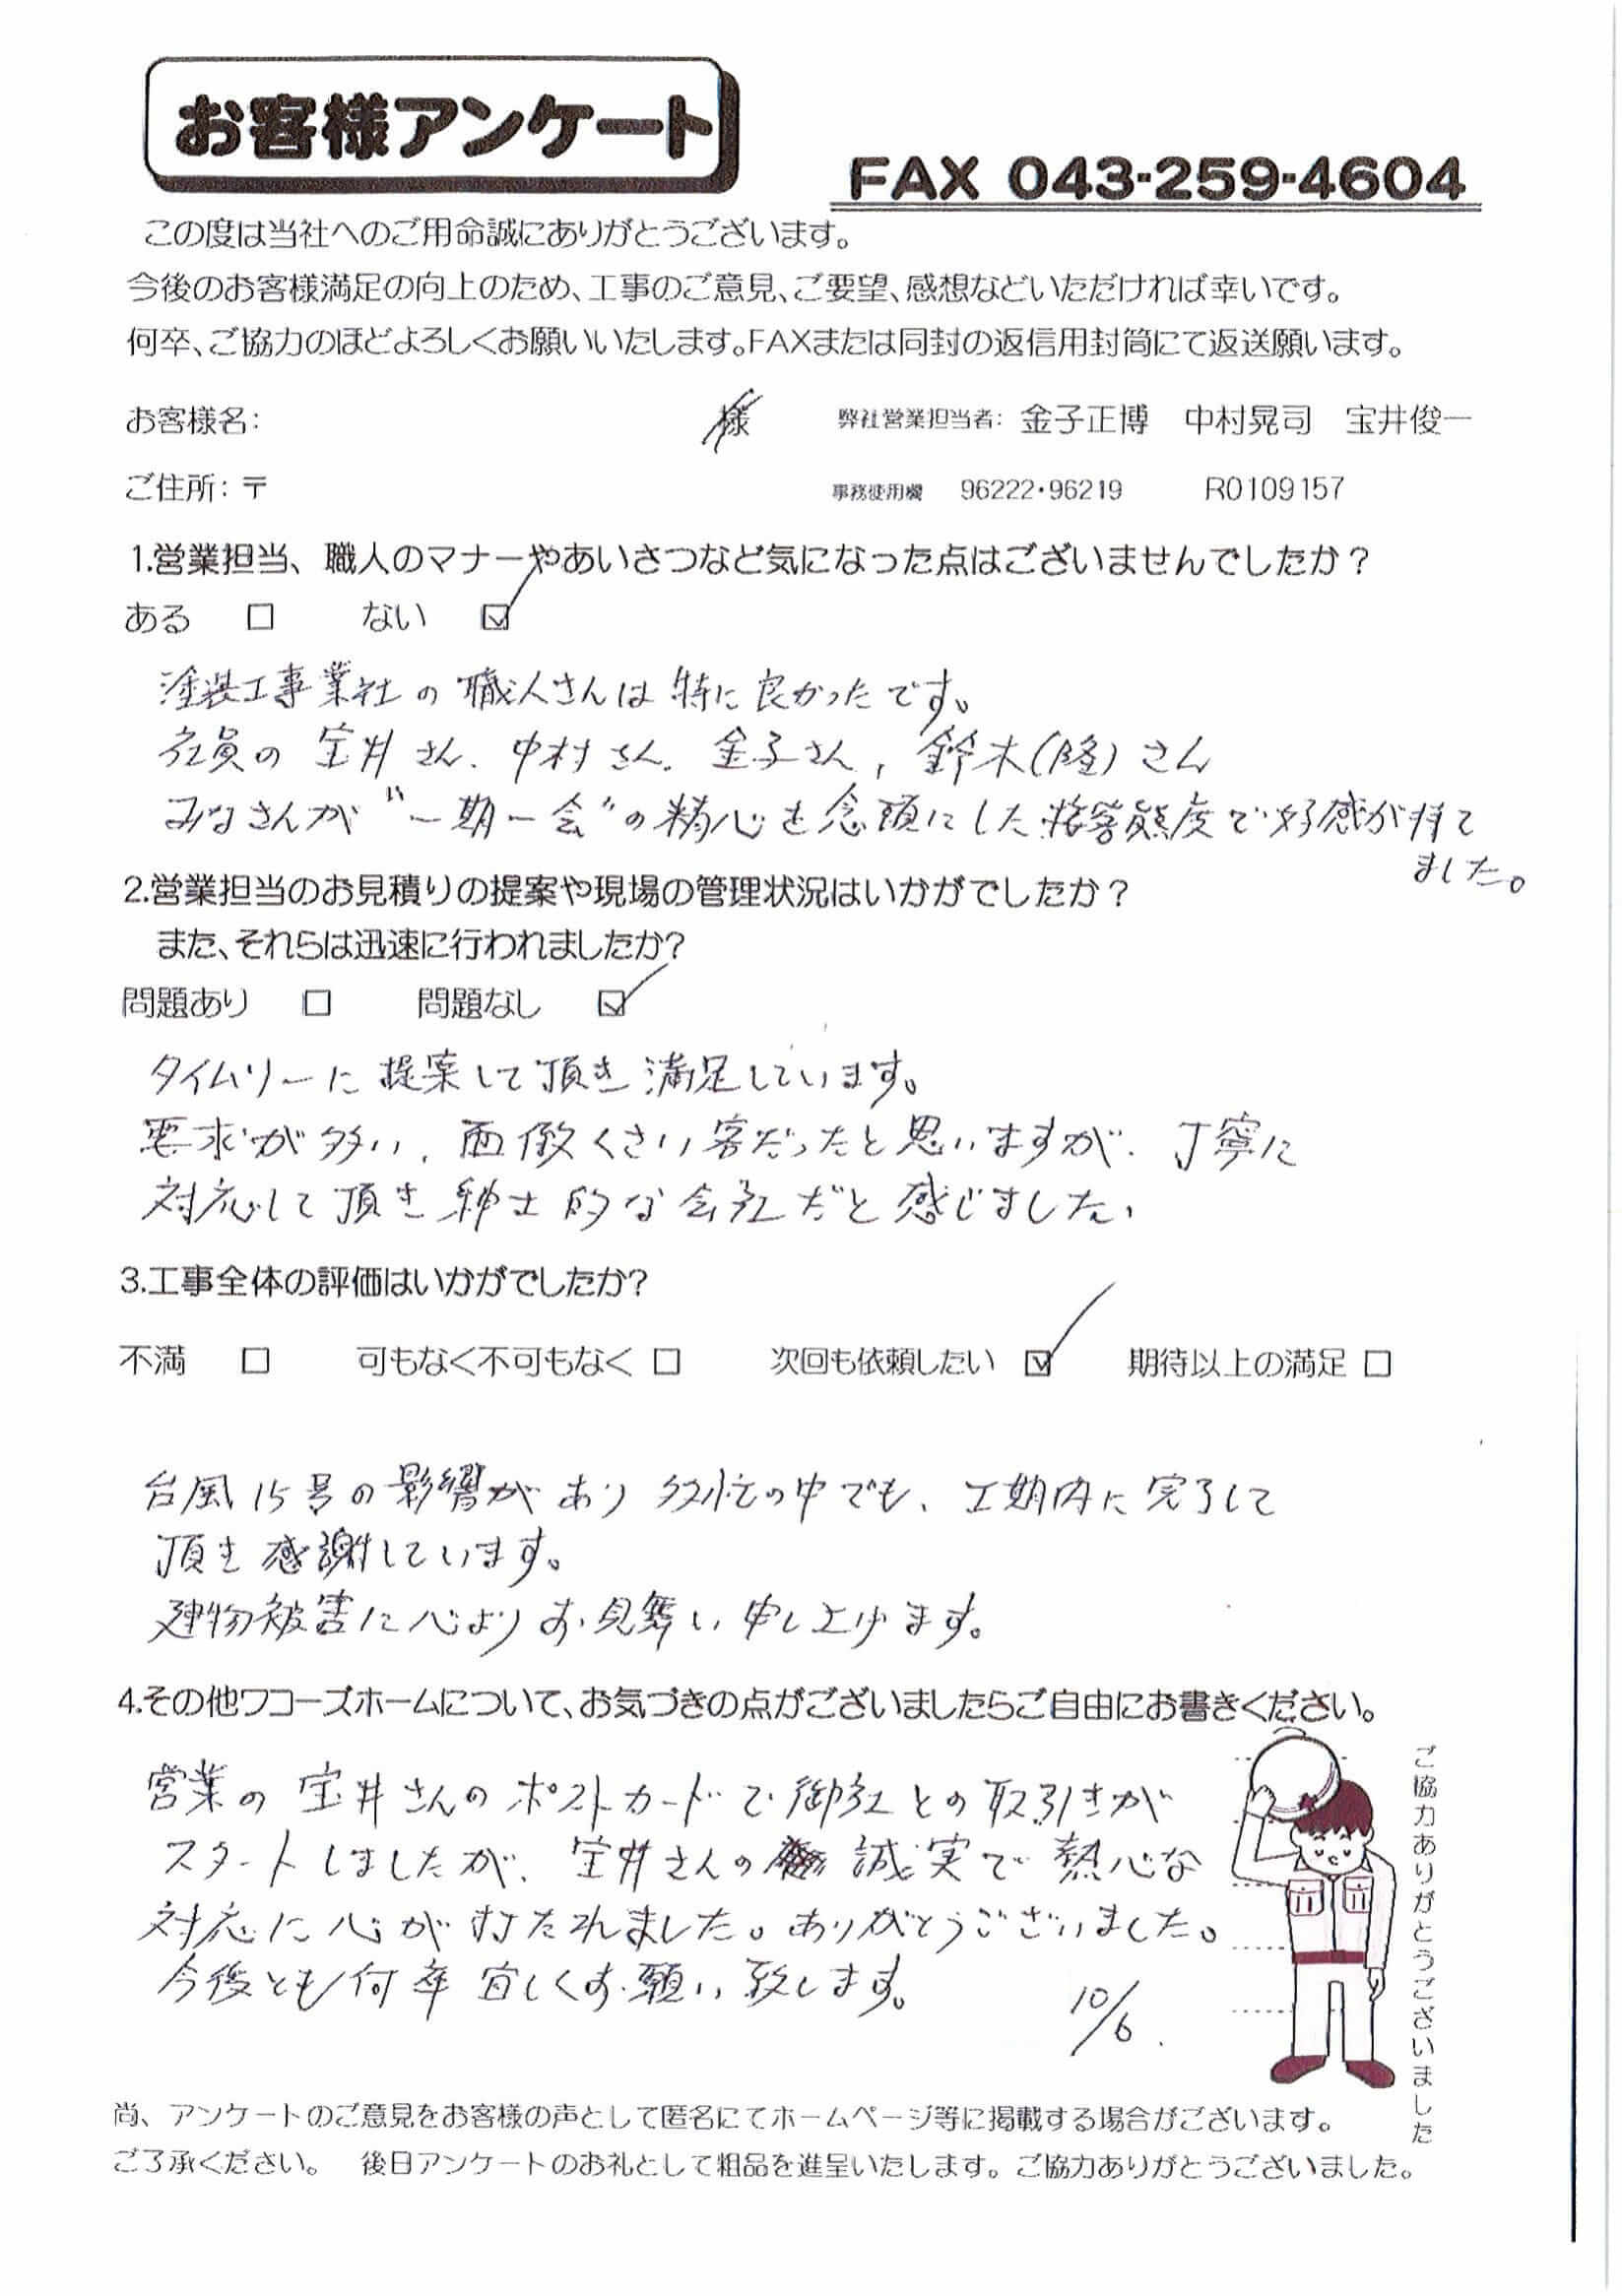 お客様アンケート
FAX 043-259-4604
この度は当社へのご用命誠にありがとうございます。
今後のお客様満足の向上のため、工事のご意見、ご要望、感想などいただければ幸いです。
何卒、ご協力のほどよろしくお願いいたします。FAXまたは同封の返信用封筒にて返送願います。
お客様名: 様 弊社営業担当者: 金子正博 中村晃司 宝井俊一
ご住所: 〒 事務使用欄 96222・96219 R0109157
1.営業担当、職人のマナーやあいさつなど気になった点はございませんでしたか？
ある □ ない ☑
塗装工事業社の職人さんは特に良かったです。
社員の宝井さん、中村さん、金子さん、鈴木(隆)さん
みなさんが“一期一会”の精心を念頭にした接客態度で好感が持て
ました。
2.営業担当のお見積りの提案や現場の管理状況はいかがでしたか？
また、それらは迅速に行われましたか?
問題あり □ 問題なし ☑
タイムリーに提案して頂き満足しています。
要求が多い、面倒くさい客だったと思いますが、丁寧に
対応して頂き紳士的な会社だと感じました。
3.工事全体の評価はいかがでしたか?
不満 □ 可もなく不可もなく □ 次回も依頼したい ☑ 期待以上の満足 □
台風15号の影響があり多忙の中でも、工期内に完了して
頂き感謝しています。
建物被害に心よりお見舞い申し上げます。
4.その他ワコーズホームについて、お気づきの点がございましたらご自由にお書きください。
営業の宝井さんのポストカードで御社との取引きが
スタートしましたが、宝井さんの誠実で熱心な
対応に心が打たれました。ありがとうございました。
今後とも何卒宜しくお願い致します。
10/6.
ご協力ありがとうございました
尚、アンケートのご意見をお客様の声として匿名にてホームページ等に掲載する場合がございます。
ご了承ください。 後日アンケートのお礼として粗品を進呈いたします。ご協力ありがとうございました。